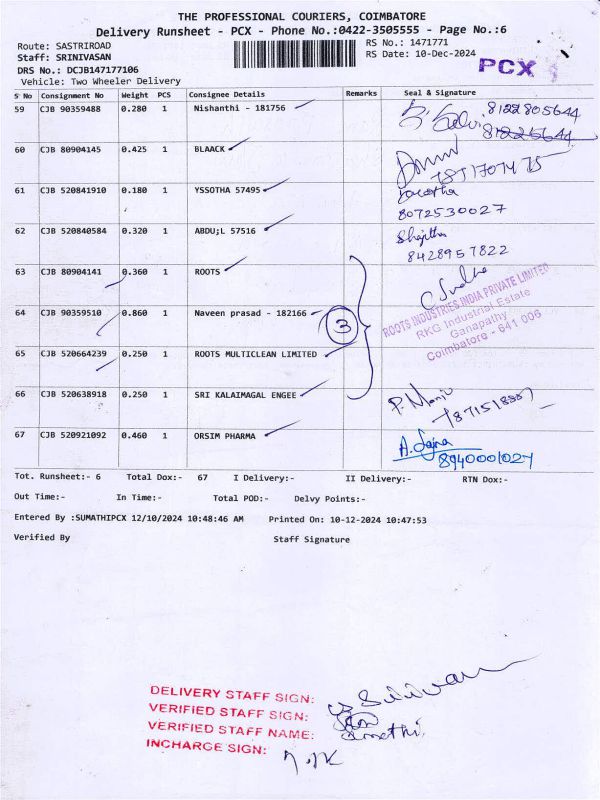 THE PROFESSIONAL COURIERS, COIMBATORE
Delivery Runsheet - PCX - Phone No.:0422-3505555 - Page No.:6
Route: SASTRIROAD
RS No.: 1471771
Staff: SRINIVASAN
RS Date: 10-Dec-2024
PCX
DRS No.: DCJB147177106
Vehicle: Two Wheeler Delivery
S No Consignment No Weight PCS Consignee Details Remarks Seal & Signature
59 CJB 90359488 0.280 1 Nishanthi - 181756 8122805644
60 CJB 80904145 0.425 1 BLAACK
61 CJB 520841910 0.180 1 YSSOTHA 57495
8072530027
62 CJB 520840584 0.320 1 ABDU;L 57516 Shajitha
8428957822
63 CJB 80904141 0.360 1 ROOTS C Sudha
64 CJB 90359510 0.860 1 Naveen prasad - 182166 3
ROOTS INDUSTRIES INDIA PRIVATE LIMITED
RKG Industrial Estate
Ganapathy
Coimbatore - 641 006
65 CJB 520664239 0.250 1 ROOTS MULTICLEAN LIMITED
66 CJB 520638918 0.250 1 SRI KALAIMAGAL ENGEE P. Manju
67 CJB 520921092 0.460 1 ORSIM PHARMA
8940001027
Tot. Runsheet:- 6 Total Dox:- 67 I Delivery:- II Delivery:- RTN Dox:-
Out Time:- In Time:- Total POD:- Delvy Points:-
Entered By :SUMATHIPCX 12/10/2024 10:48:46 AM Printed On: 10-12-2024 10:47:53
Verified By Staff Signature
DELIVERY STAFF SIGN:
VERIFIED STAFF SIGN:
VERIFIED STAFF NAME: Sumathi.
INCHARGE SIGN: